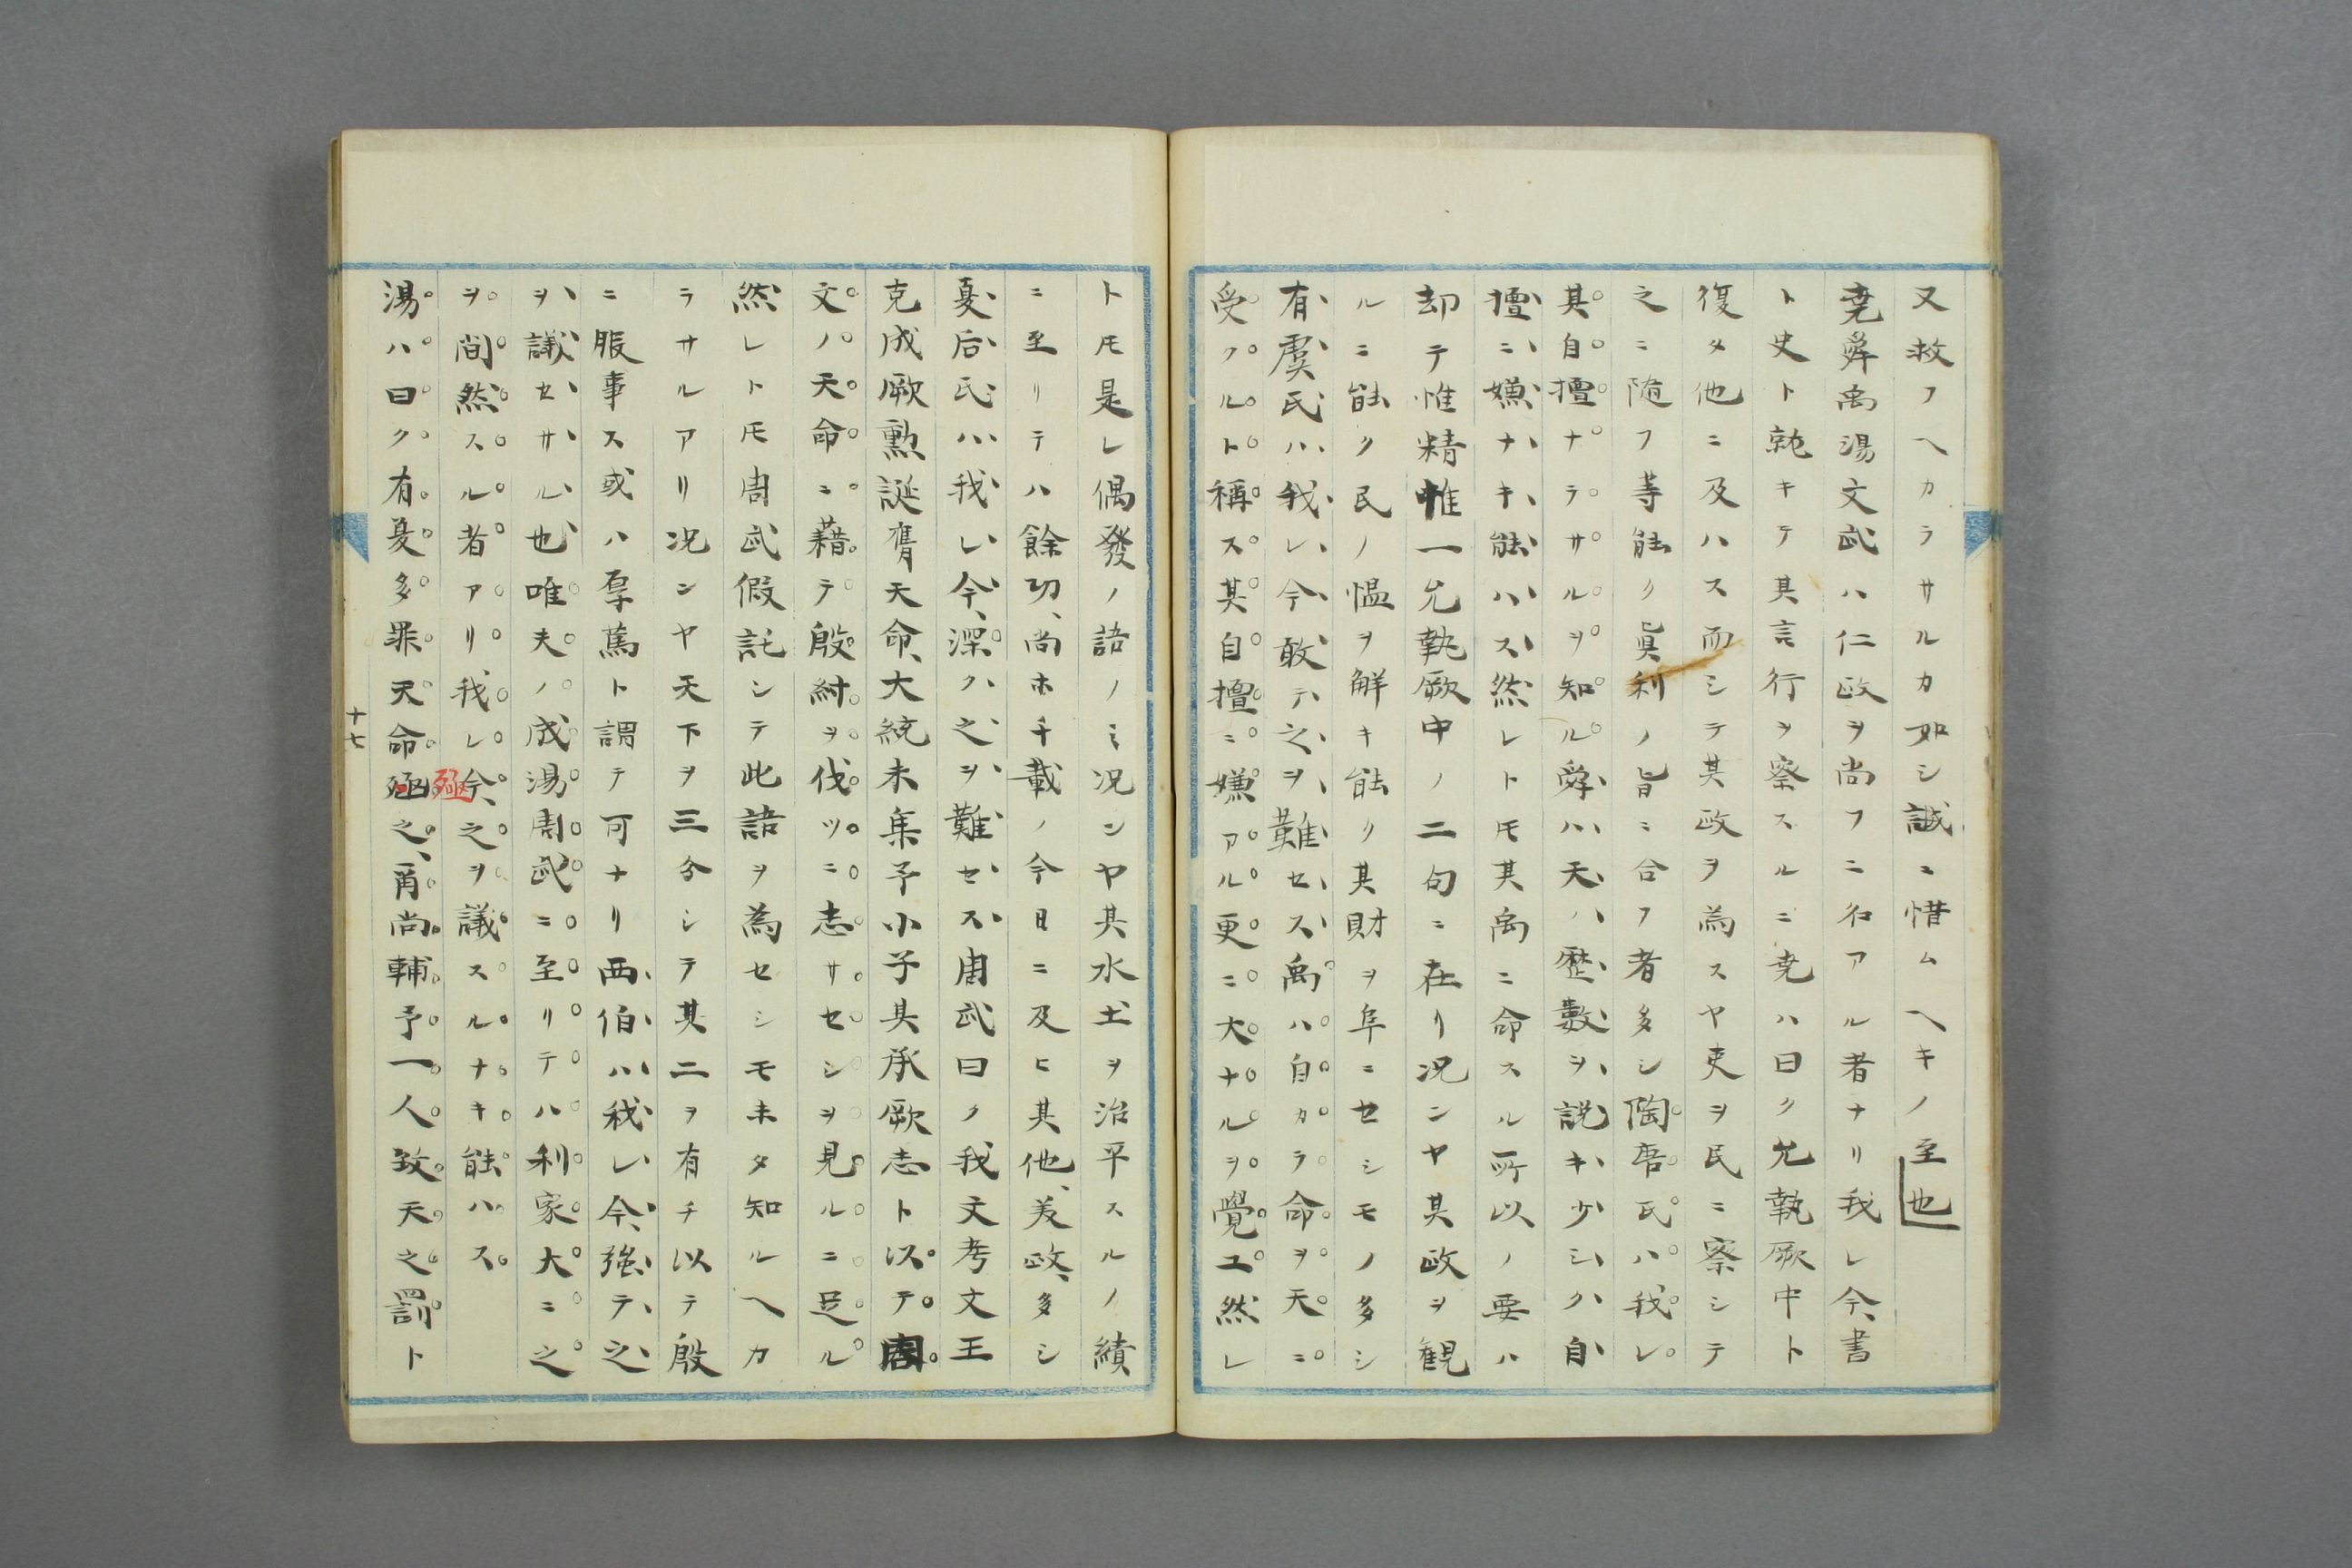 又救フヘカラサルカ如シ誠ニ惜ムヘキノ至也
堯舜禹湯文武ハ仁政ヲ尚フニ名アル者ナリ我レ今、書
ト史ト就キテ其言行ヲ察スルニ堯ハ曰ク允執厥中ト
復タ他ニ及ハス而シテ其政ヲ為スヤ吏ヲ民ニ察シテ
之ニ随フ等能ク眞利ノ旨ニ合フ者多シ陶唐氏ハ我レ
其自擅ナラサルヲ知ル舜ハ天ハ歴數ヲ説キ少シク自
擅ニ嫌ナキ能ハス然レト𪜈其禹ニ命スル所以ノ要ハ
却テ惟精惟一允執厥中ノ二句ニ在リ况ンヤ其政ヲ観
ルニ能ク民ノ慍ヲ解キ能ク其財ヲ阜ニセシモノ多シ
有虞氏ハ我レ今敢テ之ヲ難セス禹ハ自カラ命ヲ天ニ
受クルト稱ス其自擅ニ嫌アル更ニ大ナルヲ覺ユ然レ
ト𪜈是レ偶發ノ語ノミ况ンヤ其水土ヲ治平スルノ績
ニ至リテハ餘功、尚ホ千載ノ今日ニ及ヒ其他、美政、多シ
夏后氏ハ我レ今、深ク之ヲ難セス周武曰ク我文考文王
克成厥勲誕膺天命、大統未集予小子其承厥志ト以テ周
文ノ天命ニ藉テ殷紂ヲ伐ツニ志サセシヲ見ルニ足ル
然レト𪜈周武假託シテ此語ヲ為セシモ未タ知ルヘカ
ラサルアリ况ンヤ天下ヲ三分シテ其二ヲ有チ以テ殷
ニ服事ス或ハ厚篤ト謂テ可ナリ西伯ハ我レ今、強テ之
ヲ議セサル也唯夫ノ成湯周武ニ至リテハ利家大ニ之
ヲ間然スル者アリ我レ今、之ヲ議スルナキ能ハス
湯ハ曰ク有夏多罪天命殛之、爾尚輔予一人致天之罰ト
殛
十七